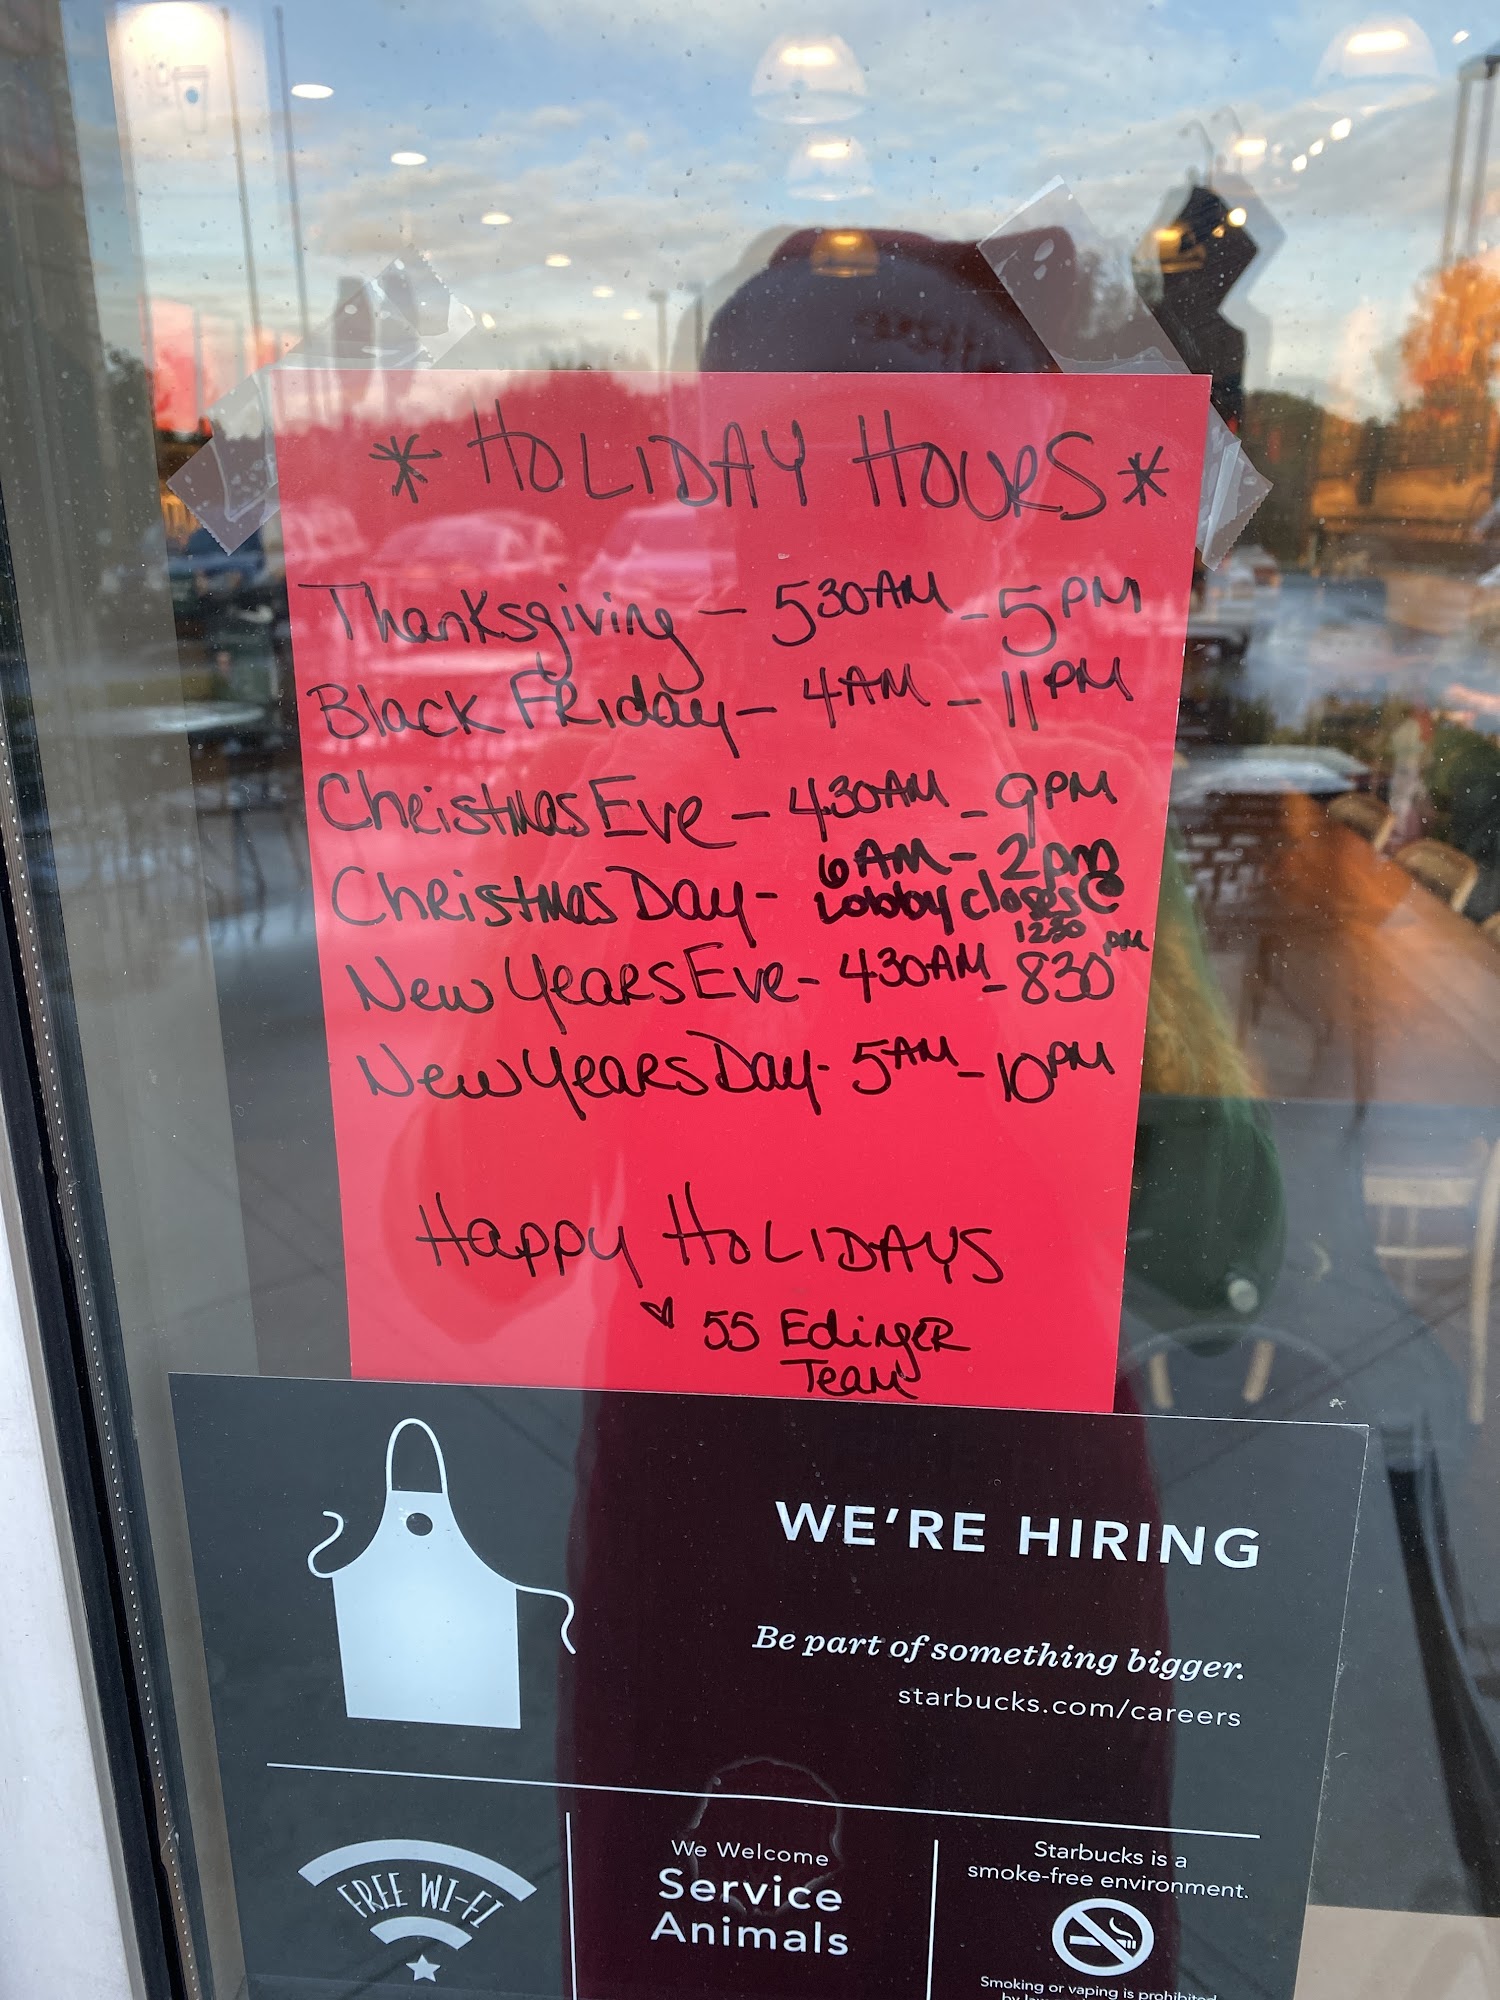 * HOLIDAY HOURS *
Thanksgiving - 530AM - 5PM
Black Friday - 4AM - 11PM
Christmas Eve - 430AM - 9PM
Christmas Day - 6AM - 2pm
Lobby closes @
1230
New Years Eve - 430AM - 830PM
New Years Day - 5AM - 10PM
Happy HOLIDAYS
♥ 55 Edinger
Team
WE'RE HIRING
Be part of something bigger.
starbucks.com/careers
FREE WI-FI
We Welcome
Service
Animals
Starbucks is a
smoke-free environment.
Smoking or vaping is prohibited